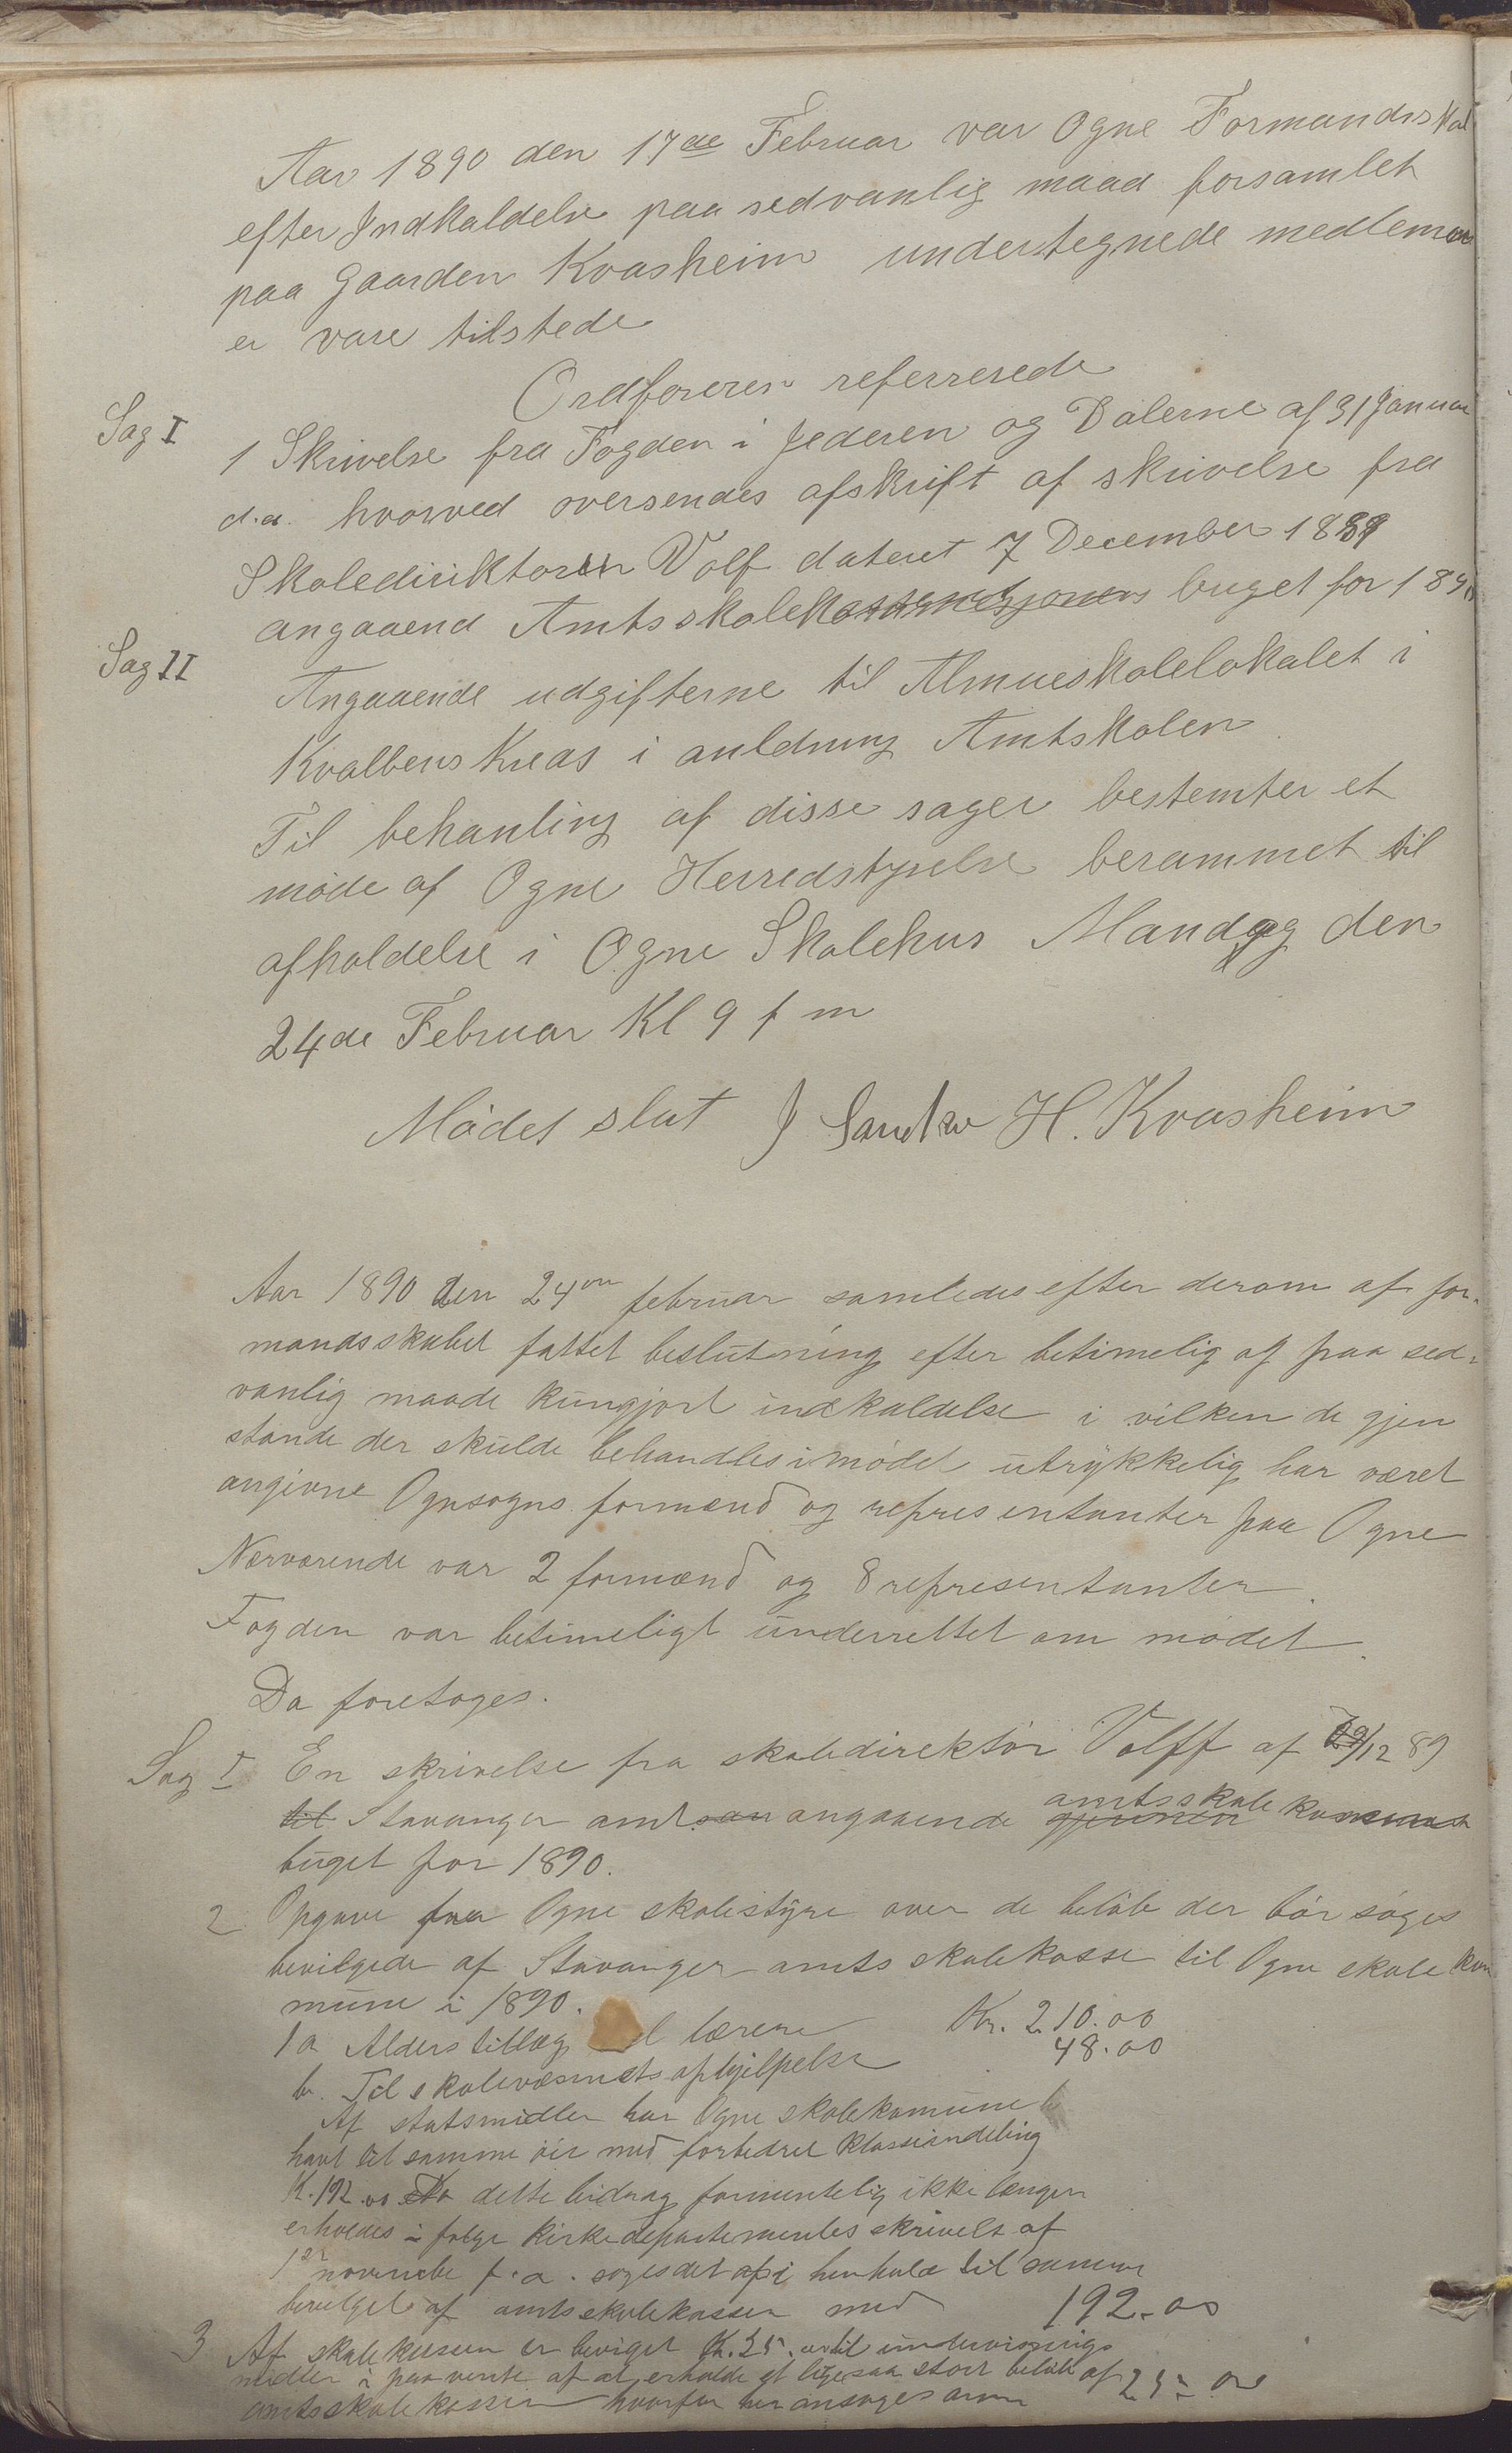 Aar 1890 den 17de Februar var Ogne Formandskab
efter Indkaldelse paa sedvanlig maad forsamlet
paa Gaarden Kvasheim undertegnede medlemm
er vare tilstede
Ordføreren refererede
Sag I
1 Skrivelse fra Fogden i Jederen og Dalerne af 31 Januar
d.a. hvorved oversendes afskrift af skrivelse fra
Skoledirektøren Volf dateret 7 December 1889
angaaend Amtsskole buget for 1890
Sag II
Angaaende udgifterne til Almueskolelokalet i
Kvalbens Kreds i anledning Amtskolen
Til behanling af disse sager bestemter et
møde af Ogne Herredstyrelse berammet til
afholdelse i Ogne Skolehus Mandag den
24de Februar Kl 9 f m
Mødet slut J H. Kvasheim
Aar 1890 den 24de februar samledes efter derom af for-
mandsskabet fattet beslutning efter betimelig og paa sed-
vanlig maade kungjort indkaldelse i vilken de gjen
stande der skulde behandles i mødet utrykkelig har været
angivne Ognesogns formænd og representanter paa Ogne
Nærværende var 2 formænd og 8 representanter.
Fogden var betimeligt underrettet om mødet.
Da foretoges.
Sag I En skrivelse fra skoledirektør Volff af /12 89
til Stavanger amt angaaende amtsskole
buget for 1890.
2 Opgave fra Ogne skolestyre over de beløb der bør søges
bevilgede af Stavanger amts skolekasse til Ogne skole kom
mune i 1890.
1 a Alderstillæg til lærere Kr. 210.00
b. Til skolevæsnets ophjelpelse 48.00
Af statsmidler har Ogne skolekomune
havt til samme øie med forbedret klasseindeling
K. 192.00 Da dette bidrag formentelig ikke længer
erholdes i følge kirkedepartementes skrivelse af
1ste novembe f.a. søges det af i henhold til samme
bevilget af amtsskolekassen med 192.00
3 Af skolekassen er beviget Kr. 25.00 til undervisnings
midler i paavente af at erholde et ligesaa stort beløb af 25.00
amtsskolekassen hvorfor her ansøges om